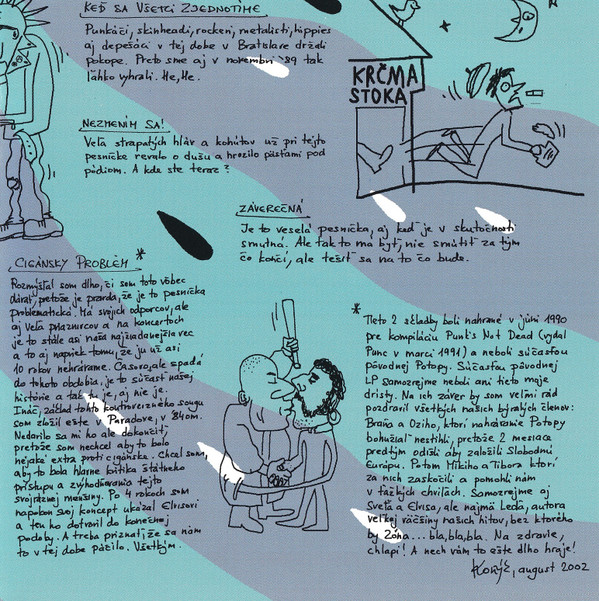 KEĎ SA VŠETCI ZJEDNOTÍME
Punkáči, skinheadi, rockeri, metalisti, hippies
aj depešáci v tej dobe v Bratislave držali
pokope. Preto sme aj v novembri '89 tak
ľahko vyhrali. He, He.
NEZMENÍM SA!
Veľa strapatých hláv a kohútov už pri tejto
pesničke revalo o dušu a hrozilo päsťami pod
pódiom. A kde ste teraz?
KRČMA
STOKA
ZÁVEREČNÁ
Je to veselá pesnička, aj keď je v skutočnosti
smutná. Ale tak to má byť, nie smútiť za tým
čo končí, ale tešiť sa na to čo bude.
CIGÁNSKY PROBLÉM *
Rozmýšľal som dlho, či sem toto vôbec
dávať, pretože je pravda, že je to pesnička
problematická. Má svojich odporcov, ale
aj veľa priaznivcov a na koncertoch
je to stále asi naša najžiadanejšia vec
a to aj napriek tomu, že ju už asi
10 rokov nehrávame. Časovo, ale spadá
do tohoto obdobia, je to súčasť našej
histórie a tak tu je, aj nie je.
Ináč, základ tohto kontroverzného songu
som zložil ešte v Paradoxe, v 84om.
Nedarilo sa mi ho ale dokončiť,
pretože som nechcel aby to bolo
nejaké extra proti cigánske. Chcel som,
aby to bola hlavne kritika štátneho
prístupu a zvýhodňovania tejto
svojráznej menšiny. Po 4 rokoch som
napokon svoj koncept ukázal Elvisovi
a ten ho dotvoril do konečnej
podoby. A treba priznať, že sa nám
to v tej dobe páčilo. Všetkým.
* Tieto 2 skladby boli nahrané v júni 1990
pre kompiláciu Punk's Not Dead (vydal
Punc v marci 1991) a neboli súčasťou
pôvodnej Potopy. Súčasťou pôvodnej
LP samozrejme neboli ani tieto moje
dristy. Na ich záver by som veľmi rád
pozdravil všetkých našich bývalých členov:
Braňa a Oziho, ktorí nahrávanie Potopy
bohužiaľ nestihli, pretože 2 mesiace
predtým odišli aby založili Slobodnú
Európu. Potom Mikiho a Tibora ktorí
za nich zaskočili a pomohli nám
v ťažkých chvíľach. Samozrejme aj
Sveťa a Elvisa, ale najmä Leďa, autora
veľkej väčšiny našich hitov, bez ktorého
by Zóna... bla, bla, bla. Na zdravie,
chlapi! A nech vám to ešte dlho hraje!
Koňýk, august 2002